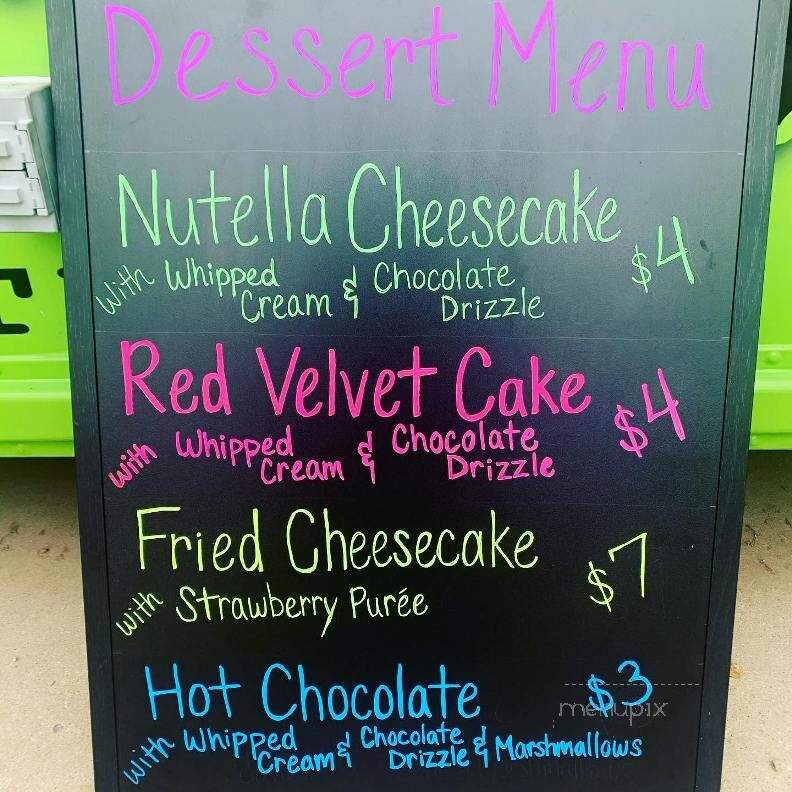 Dessert Menu
Nutella Cheesecake $4
with Whipped Cream & Chocolate Drizzle
Red Velvet Cake $4
with Whipped Cream & Chocolate Drizzle
Fried Cheesecake $7
with Strawberry Purée
Hot Chocolate $3
menupix
with Whipped Cream & Chocolate Drizzle & Marshmallows